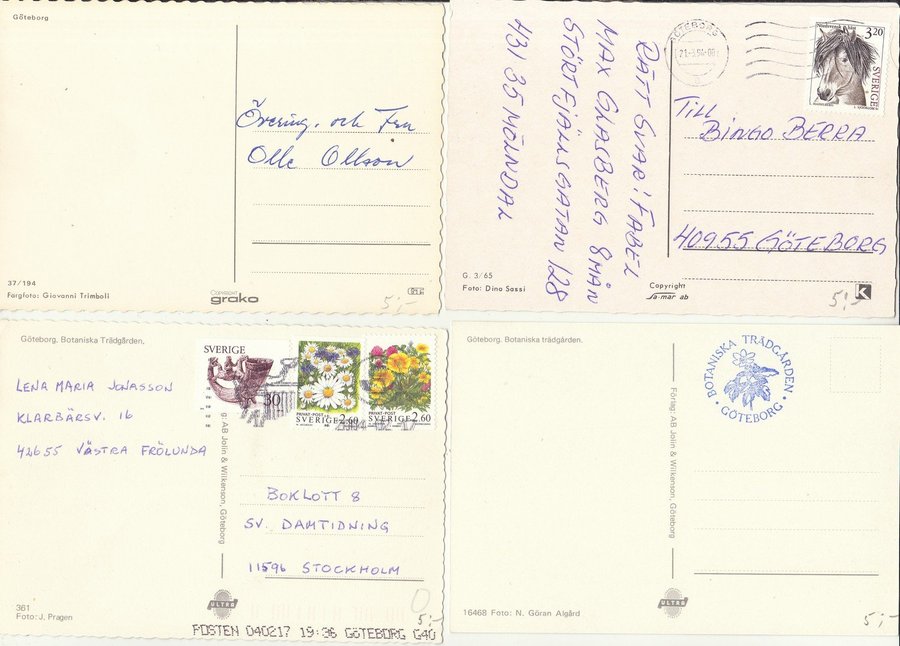 Göteborg
Övering. och Fru
Olle Ollson
37/194
Färgfoto: Giovanni Trimboli
COPYRIGHT
grako
5:-
RÄTT SVAR! FABEL
MAX GLASBERG 8 MÅN
STÖRTFJÄLLSGATAN 128
431 35 MÖLNDAL
GÖTEBORG
3.20
SVERIGE
TILL
BINGO BERRA
40955 GÖTEBORG
G. 3/65
Foto: Dino Sassi
Copyright
Sa-mar ab
K
5:-
Göteborg. Botaniska Trädgården.
LENA MARIA JONASSON
KLARBÄRSV. 16
42655 VÄSTRA FRÖLUNDA
SVERIGE
30
PRIVAT-POST
SVERIGE 2.60
PRIVAT-POST
SVERIGE 2.60
g: AB Jolin & Wilkenson, Göteborg
BOKLOTT 8
SV. DAMTIDNING
11596 STOCKHOLM
ULTRA
361
Foto: J. Pragen
0
5:-
POSTEN 040217 19:36 GÖTEBORG G40
Göteborg. Botaniska trädgården.
BOTANISKA TRÄDGÅRDEN
GÖTEBORG
Förlag: AB Jolin & Wilkenson, Göteborg
ULTRA
16468 Foto: N. Göran Algård
5:-